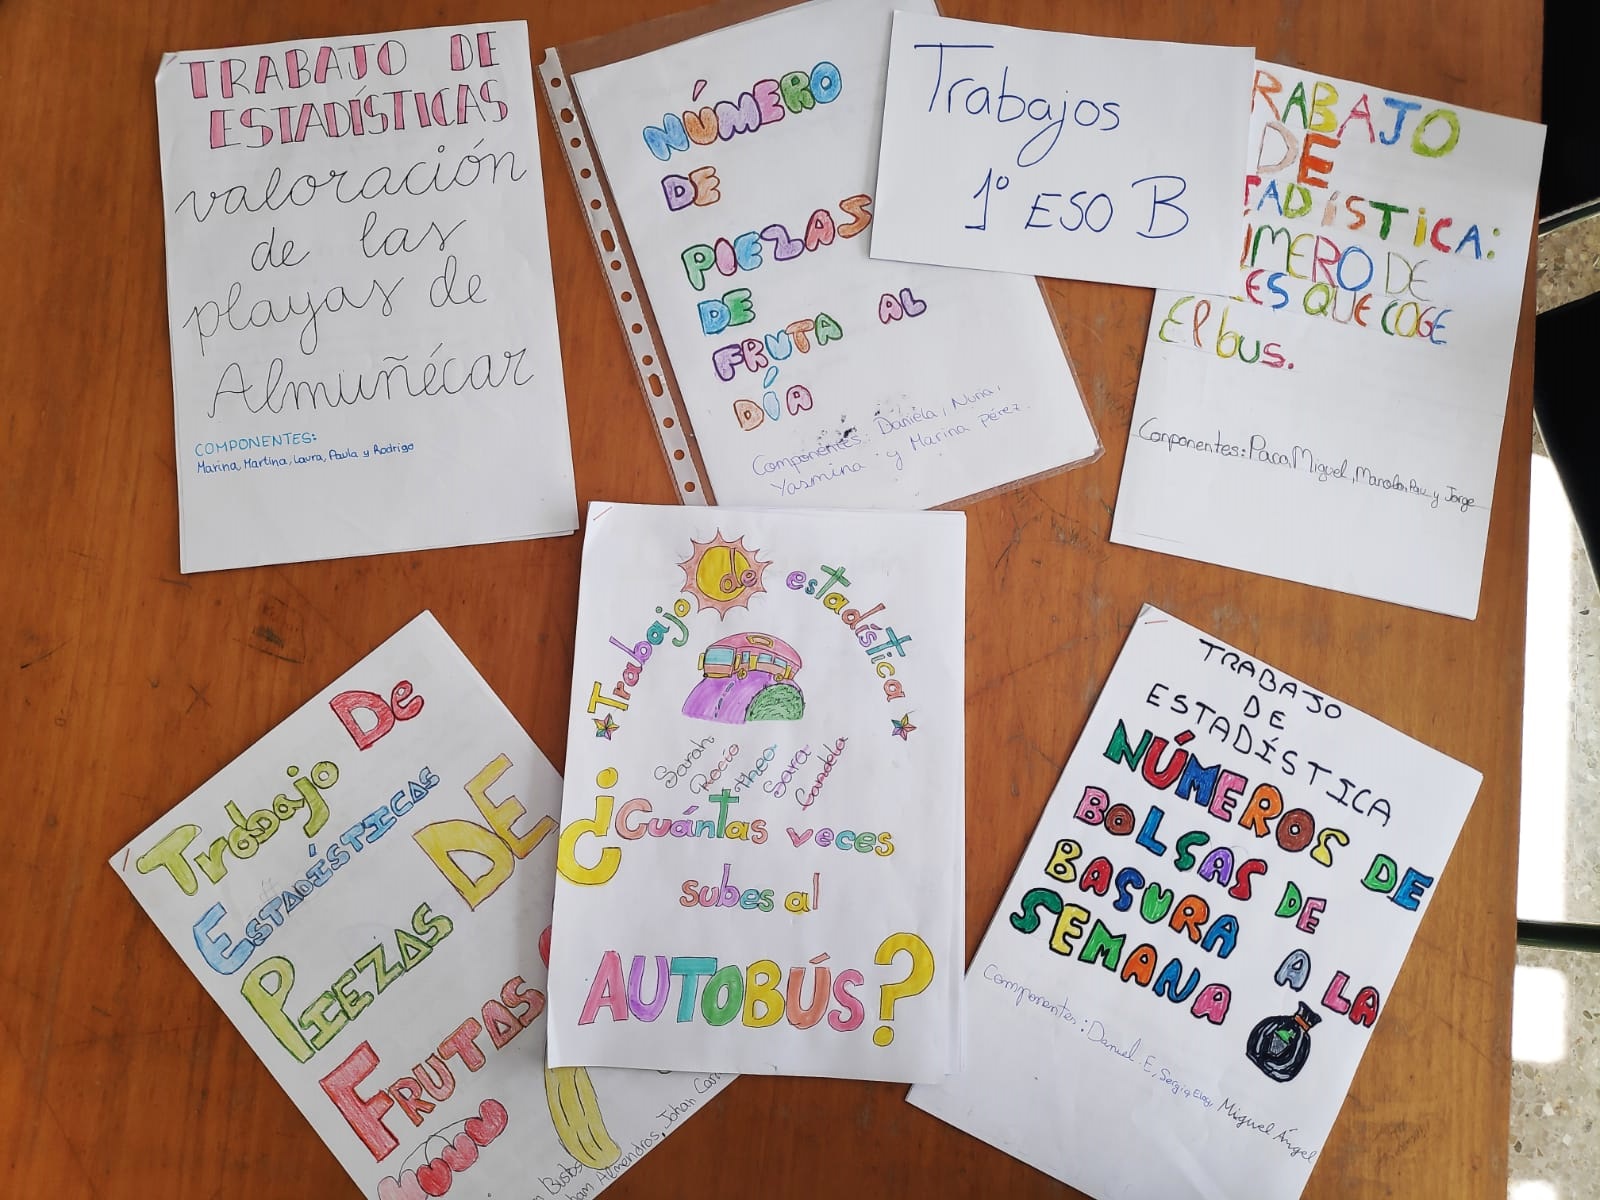 TRABAJO DE
ESTADÍSTICAS
valoración
de las
playas de
Almuñécar
COMPONENTES:
Marina, Martina, Laura, Paula y Rodrigo
NÚMERO
DE
PIEZAS
DE
FRUTA AL
DÍA
Componentes: Daniela, Nuria,
Yasmina y Marina pérez.
Trabajos
1º ESO B
RABAJO
DE
TADÍSTICA:
MERO DE
ES QUE COGE
El bus.
Conponentes: Paca, Miguel, Manolo, Pau y Jorge
Trabajo De
Estadísticas
Piezas DE
Frutas
Bustos
Almendros, Johan
Trabajo de estadística
Sarah
Rocío
Thea
Sara
Candela
¿Cuántas veces
subes al
AUTOBÚS?
TRABAJO
DE
ESTADÍSTICA
NÚMEROS DE
BOLSAS DE
BASURA A LA
SEMANA
Componentes: Daniel E, Sergio, Eloy, Miguel Ángel